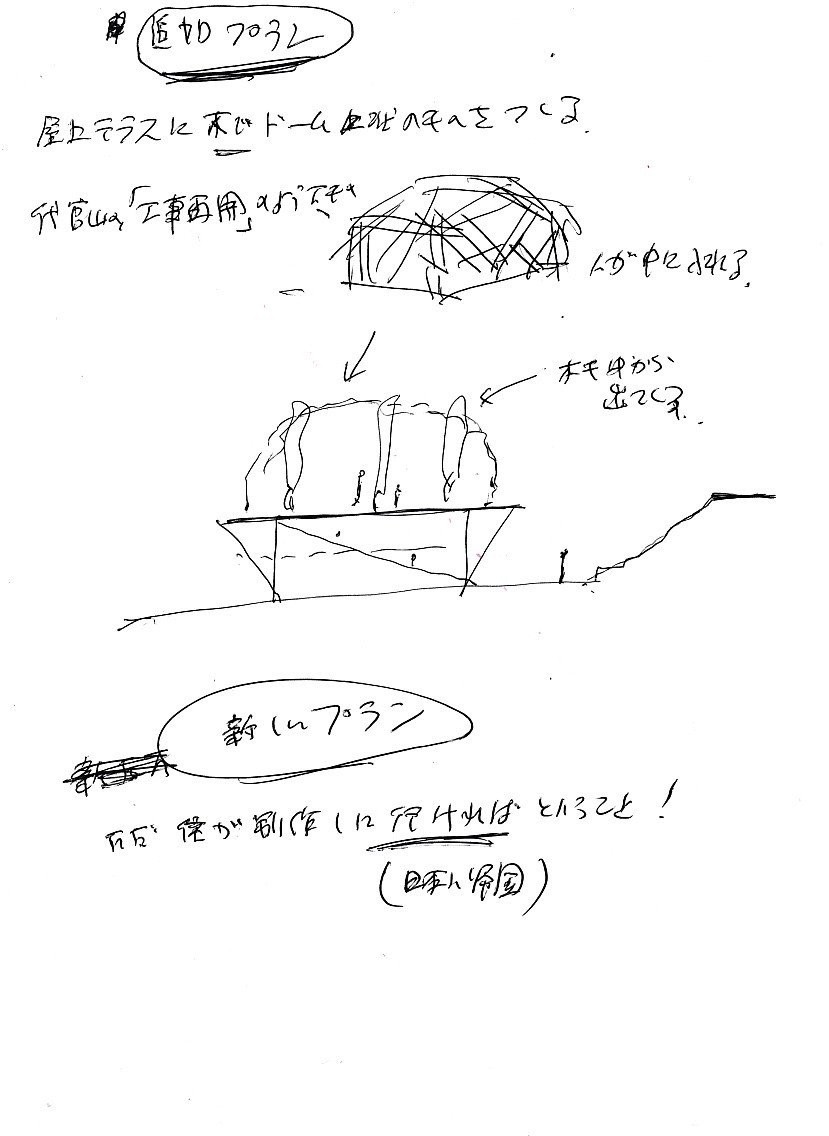 追加プラン
屋上テラスに木でドーム状のものをつくる.
代官山の「工事再開」のような
人が中に入れる.
木も中から
出てくる.
新しいプラン
ただ 僕が制作しに行ければということ!
(日本に帰国)